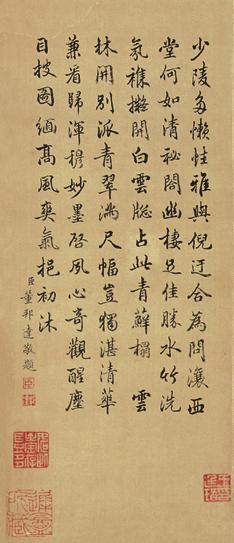 少陵多懶性雅與倪迂合為問瀼西
堂何如清祕閣幽棲足佳勝水竹洗
氛襍擬開白雲牎占此青蘚榻 雲
林開別派青翠滿尺幅豈獨湛清華
兼看歸渾穆妙墨啓夙心奇觀醒塵
目披圖緬高風爽氣挹初沐
臣董邦達敬題